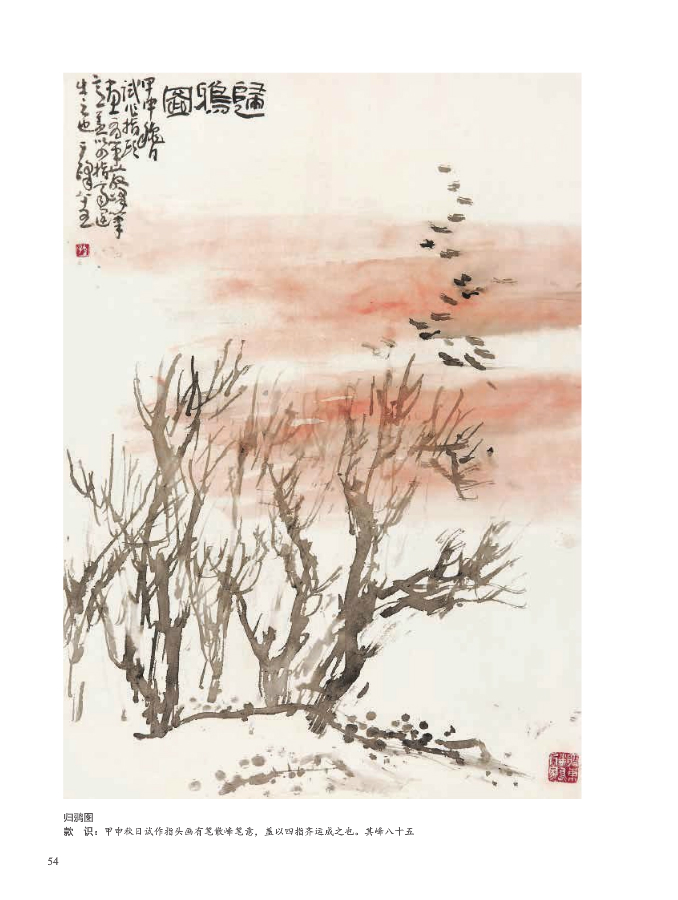 歸鴉圖
甲申穐日
試作指頭
畫有筆散峰筆
意盖以四指齊運
成之也 其峰八十五
归鸦图
款　识：甲申秋日试作指头画有笔散峰笔意，盖以四指齐运成之也。其峰八十五
54